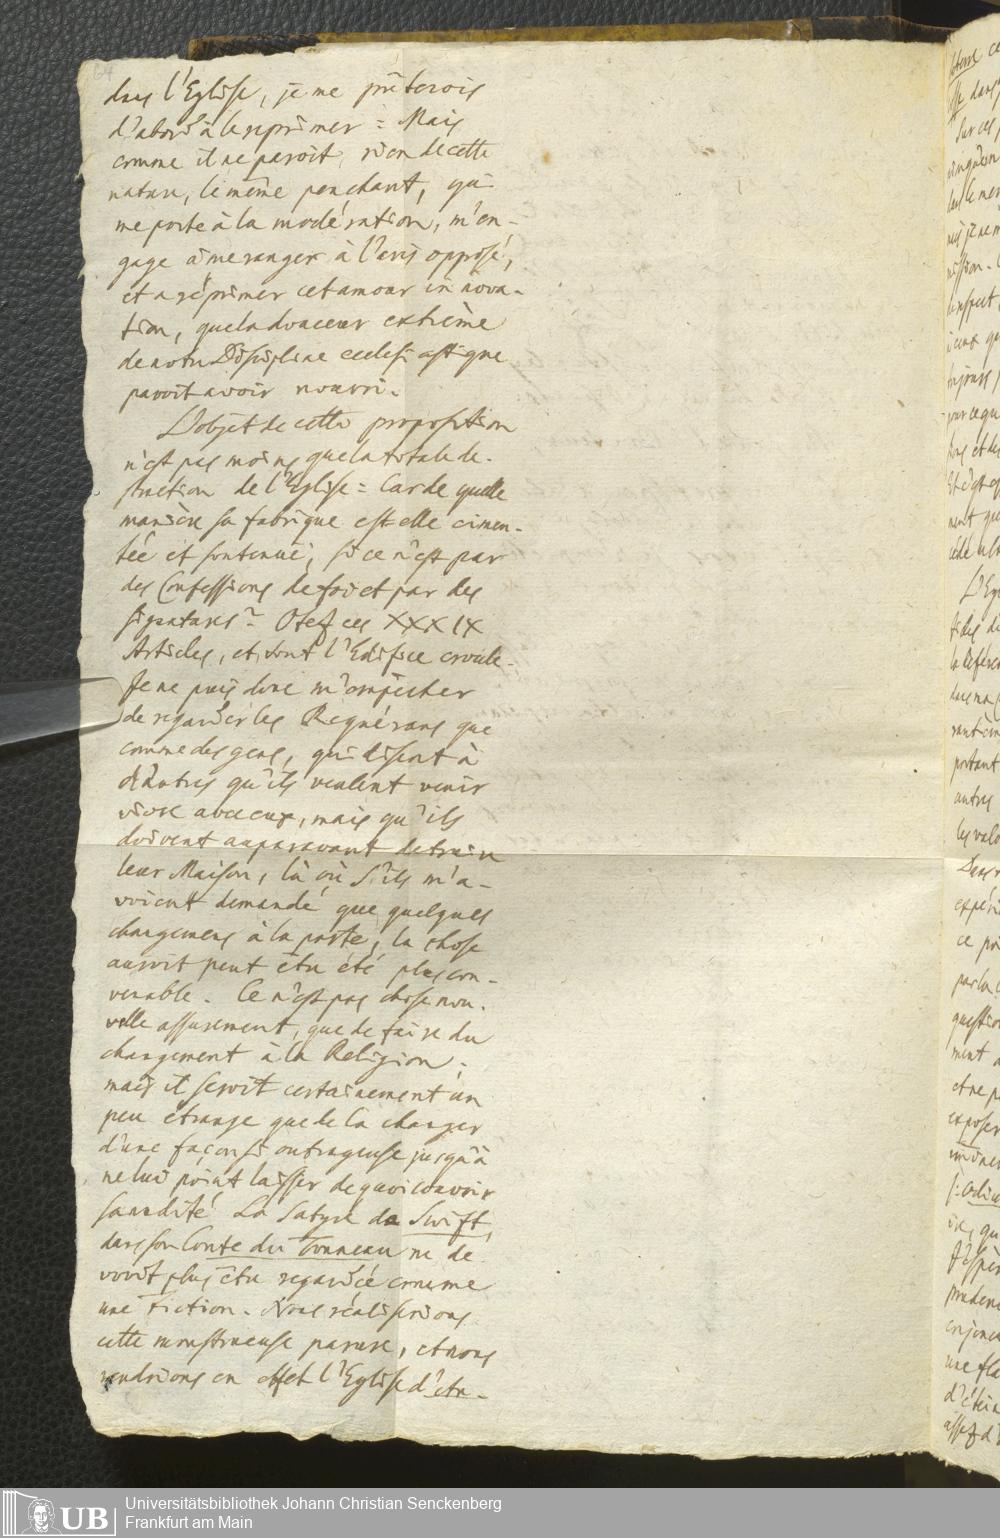 64
dans l'Eglise, je me prêterois
d'abord à le reprimer: Mais
comme il ne paroit, rien de cette
nature, le même penchant, qui
me porte à la modération, m'en-
gage à me ranger à l'avis opposé,
et a réprimer cet amour innova-
tion, que la douceur extrème
de notre Discipline ecclesiastique
paroit avoir nourri.
L'objet de cette proposition
n'est pas moins que la totale de-
struction de l'Eglise: Car de quelle
manière sa fabrique est elle cimen-
tée et soutenuë, si ce n'est par
des Confessions de foi et par des
signatures? Otez ces XXXIX
Articles, et dont l'Edifice croule.
Je ne puis donc m'empêcher
de regarder les Requérans que
comme des gens, qui disent à
d'autres qu'ils veulent venir
vivre avec eux, mais qu'ils
doivent auparavant detruire
leur Maison, là où s'ils m'a-
voient demandé que quelques
changemens à la porte, la chose
auroit peut être été plus con-
venable. Ce n'est pas chose nou-
velle assurement, que de faire du
changement à la Religion;
mais il seroit certainement un
peu étrange que de la changer
d'une façon si outrageuse jusqu'à
ne lui point laisser de quoi couvrir
sa nudité. La Satyre de Swift,
dans son Conte du Tonneau ne de-
vroit plus être regardée comme
une Fiction. Nous réaliserions
cette monstrueuse parure, et nous
rendrions en effet l'Eglise d'An-
UB
Universitätsbibliothek Johann Christian Senckenberg
Frankfurt am Main